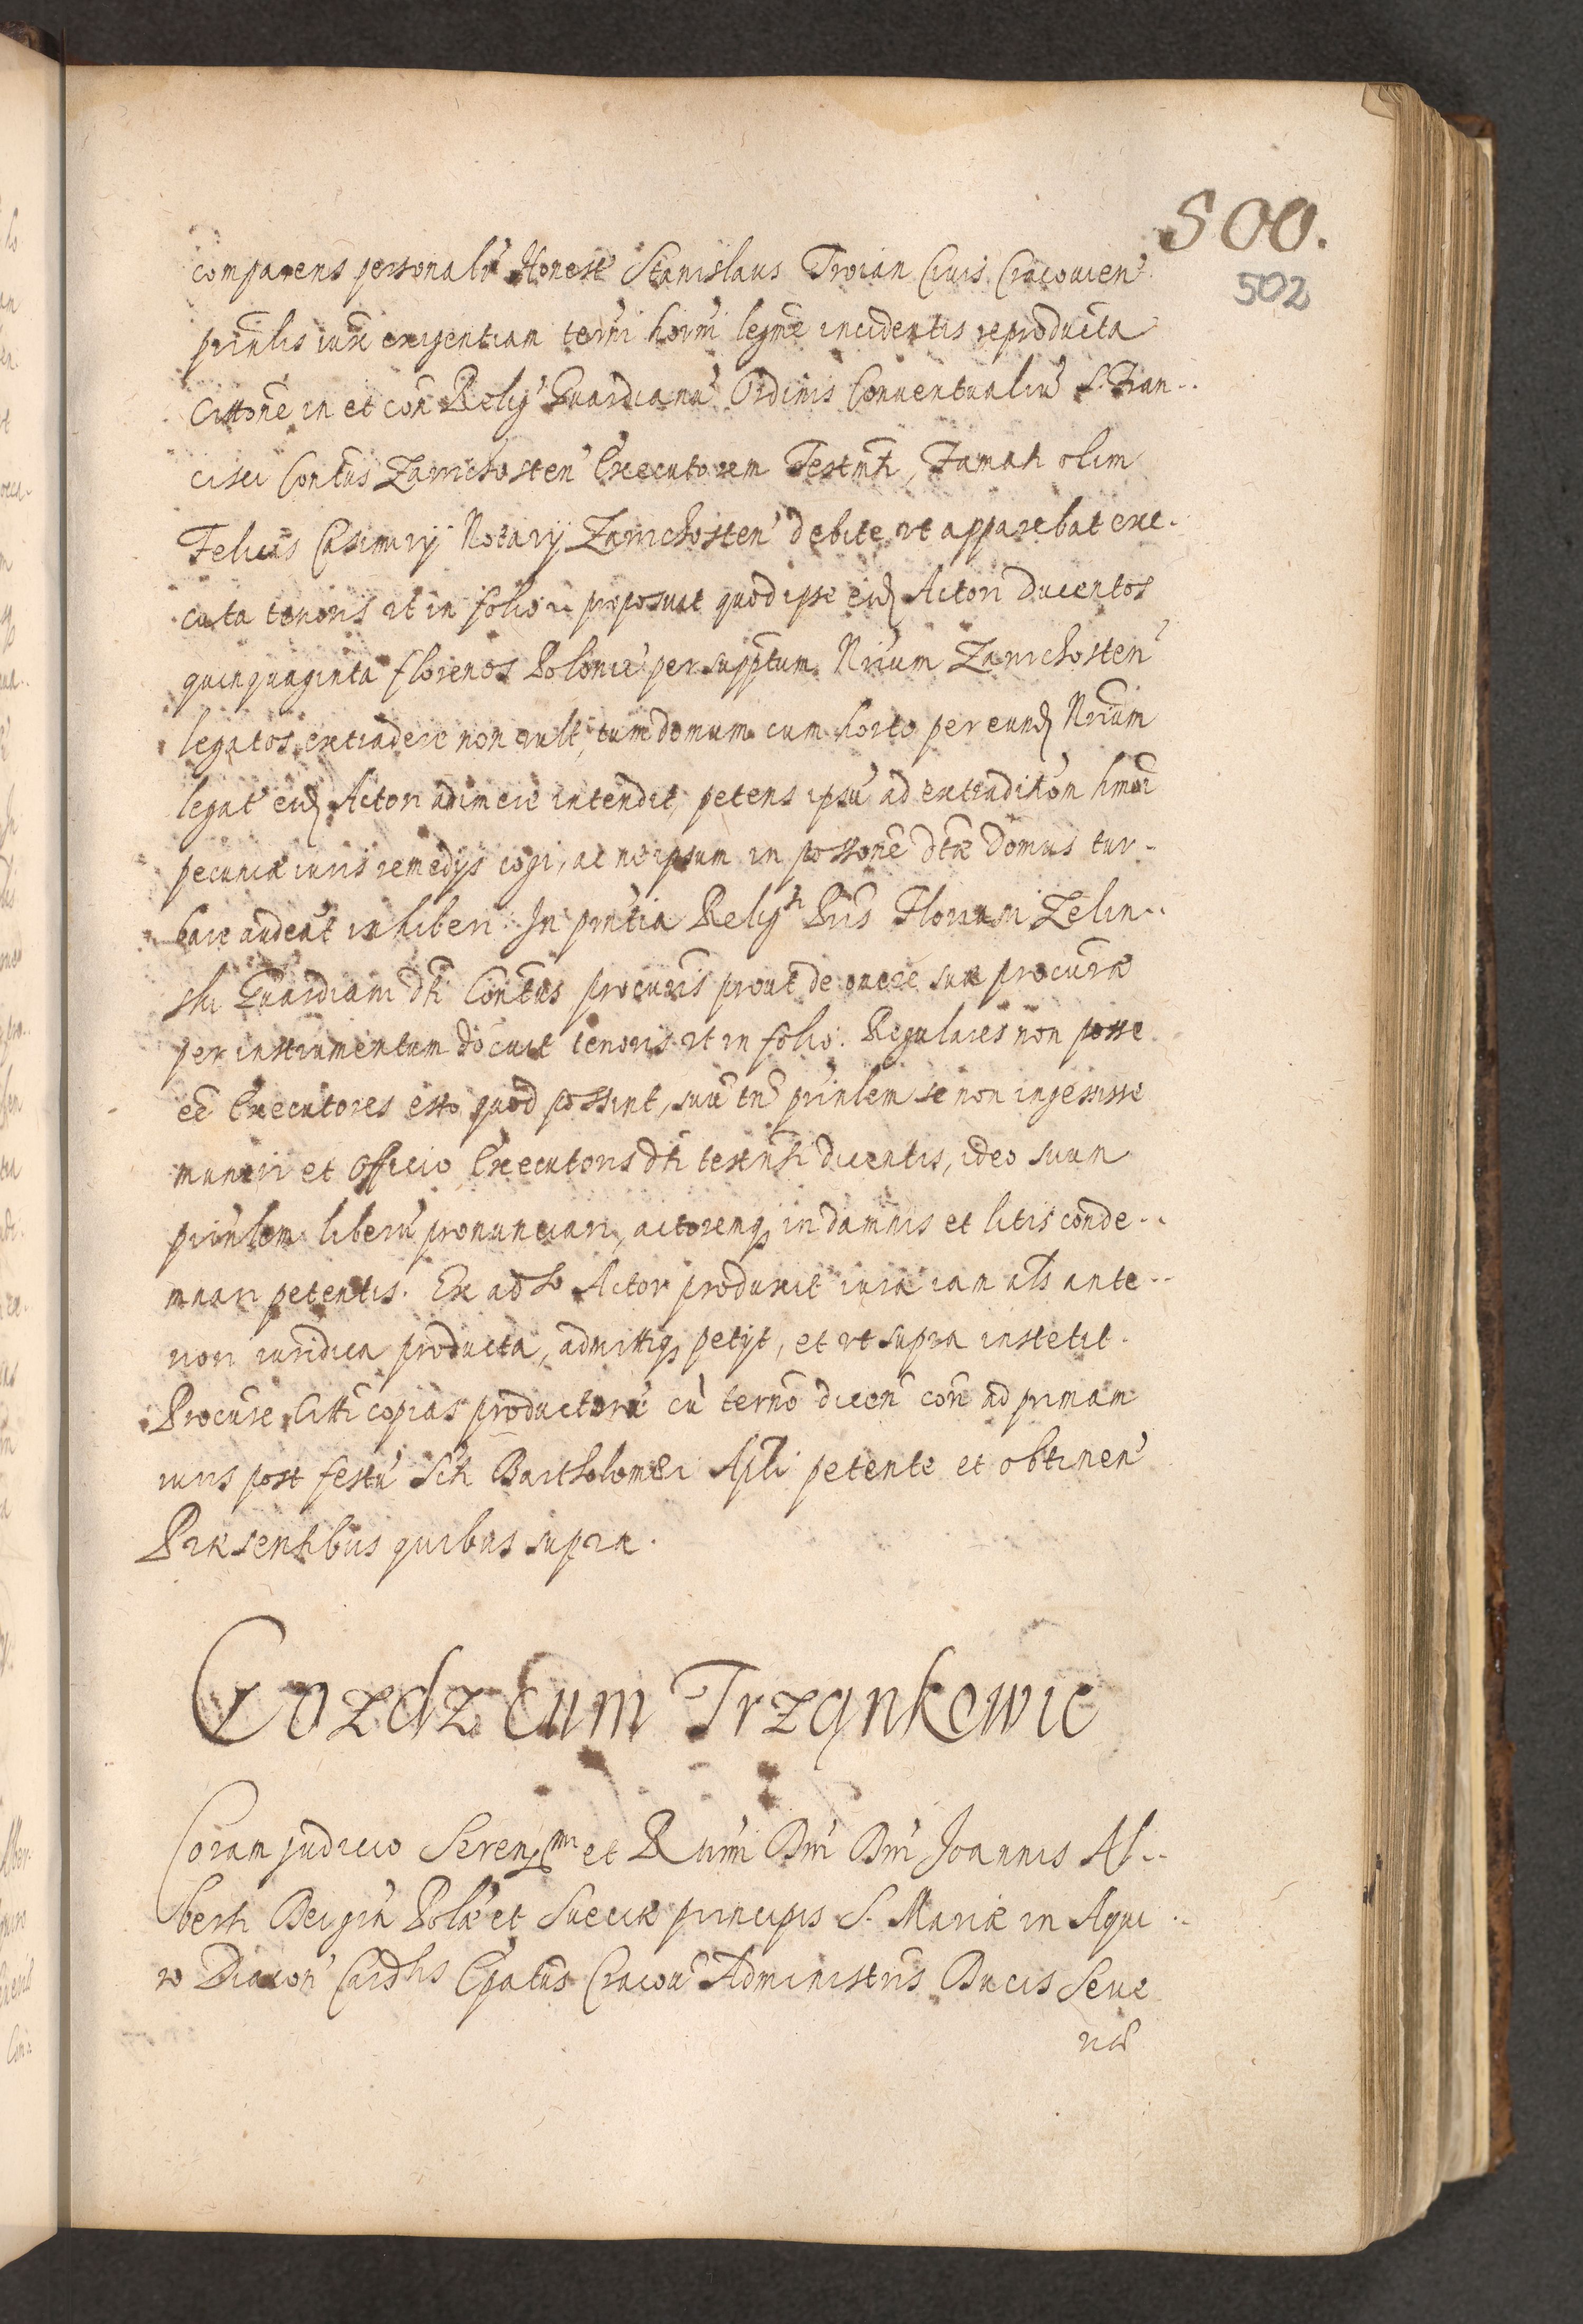 500.
502
comparens personalr̃ Honest' Stanislaus Troian Civis Cracovien'
prin̄lis iux̄ exigentiam ter̄ni hor̄ni leg̃me incidentis reproducta
Citt̃one in et con̄ Relig' Guardianū Ordinis Conventualiū S. Fran-
cisci Con̄tus Zawichosten' Executorem Testm̄ti, Famati olim
Felicis Casimirij Notarij Zawichosten' debite ut apparebat exe-
cuta tenoris ut in folio proposuit quod ipse eid. Actori Ducentos
quinquaginta florenos Polonic' per suppt̃um Nr̃ium Zawichosten'
legatos extradere non vult, tum domum cum horto per eund. Nr̃ium
legat' eid. Actori adimere intendit, petens ipsū ad extraditōn hm̄oi
pecuniæ iuris remedijs cogi, ac ne ipsum in poss̃one dt̃æ domus tur-
bare audeat inhiberi. In pn̄tia Relig. Pr̃is Floriani Zelin-
ski Guardiani dt̃i Con̄tus procur̄is prout de onere suæ procur̄æ
per instrumentum docuit tenoris ut in folio. Regulares non posse
eē Executores esto quod possint, suū tn̄ prin̄lem se non ingessisse
muneri et officio Executoris dt̃i testm̄ti dicentis, ideo suum
prin̄lem liberū pronunciari, actoremq; in damnis et litis conde-
mnari petentis. Ex adso Actor produxit iura iam al̄s ante
non iuridica producta, admittiq; petijt, et ut supra institit.
Procur̄e Citt̃i copias productorū cū ter̄no dicen' con̄ ad primam
iuris post festū Sc̄ti Bartholomei Apl̄i petente et obtinen'
Præsentibus quibus supra.
Gozdz Cum Trząnkowic
Coram judicio Serenissmi et Rn̄mi Dn̄i Dn̄i Joannis Al-
berti Dei gr̄a Pol̄æ et Sueciæ principis S. Mariæ in Aqui
ro Diacon' Card̄lis Ep̄atus Cracov' Administr̄is Ducis Seve
riæ